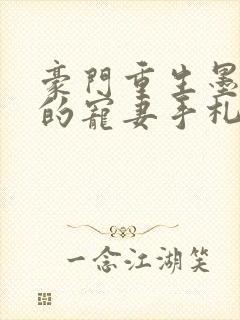 豪門重生墨
的寵妻手札
一念江湖笑